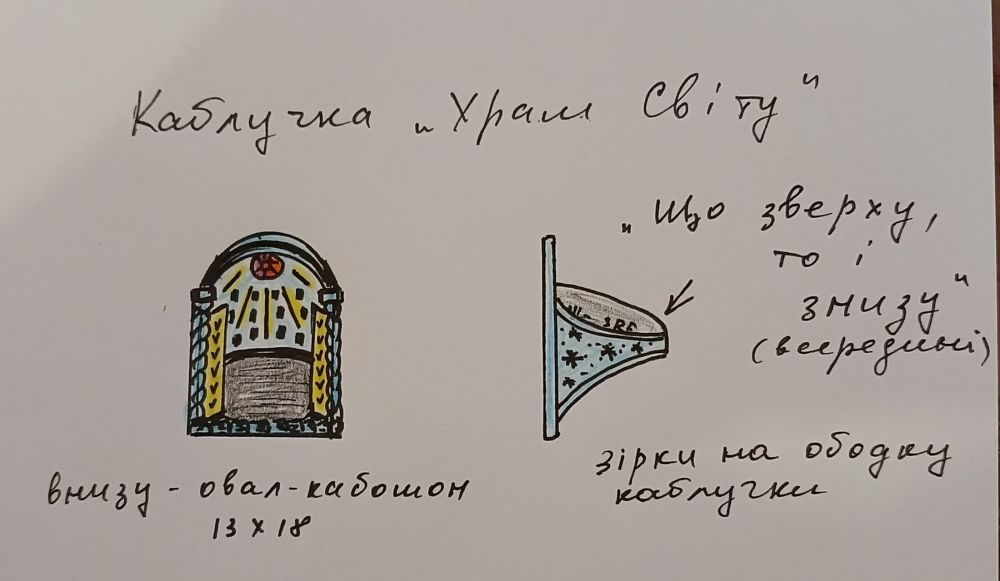 Каблучка „Храм Світу"
„Що зверху,
то і
знизу"
(всередині)
внизу - овал-кабошон
13 х 18
зірки на ободку
каблучки